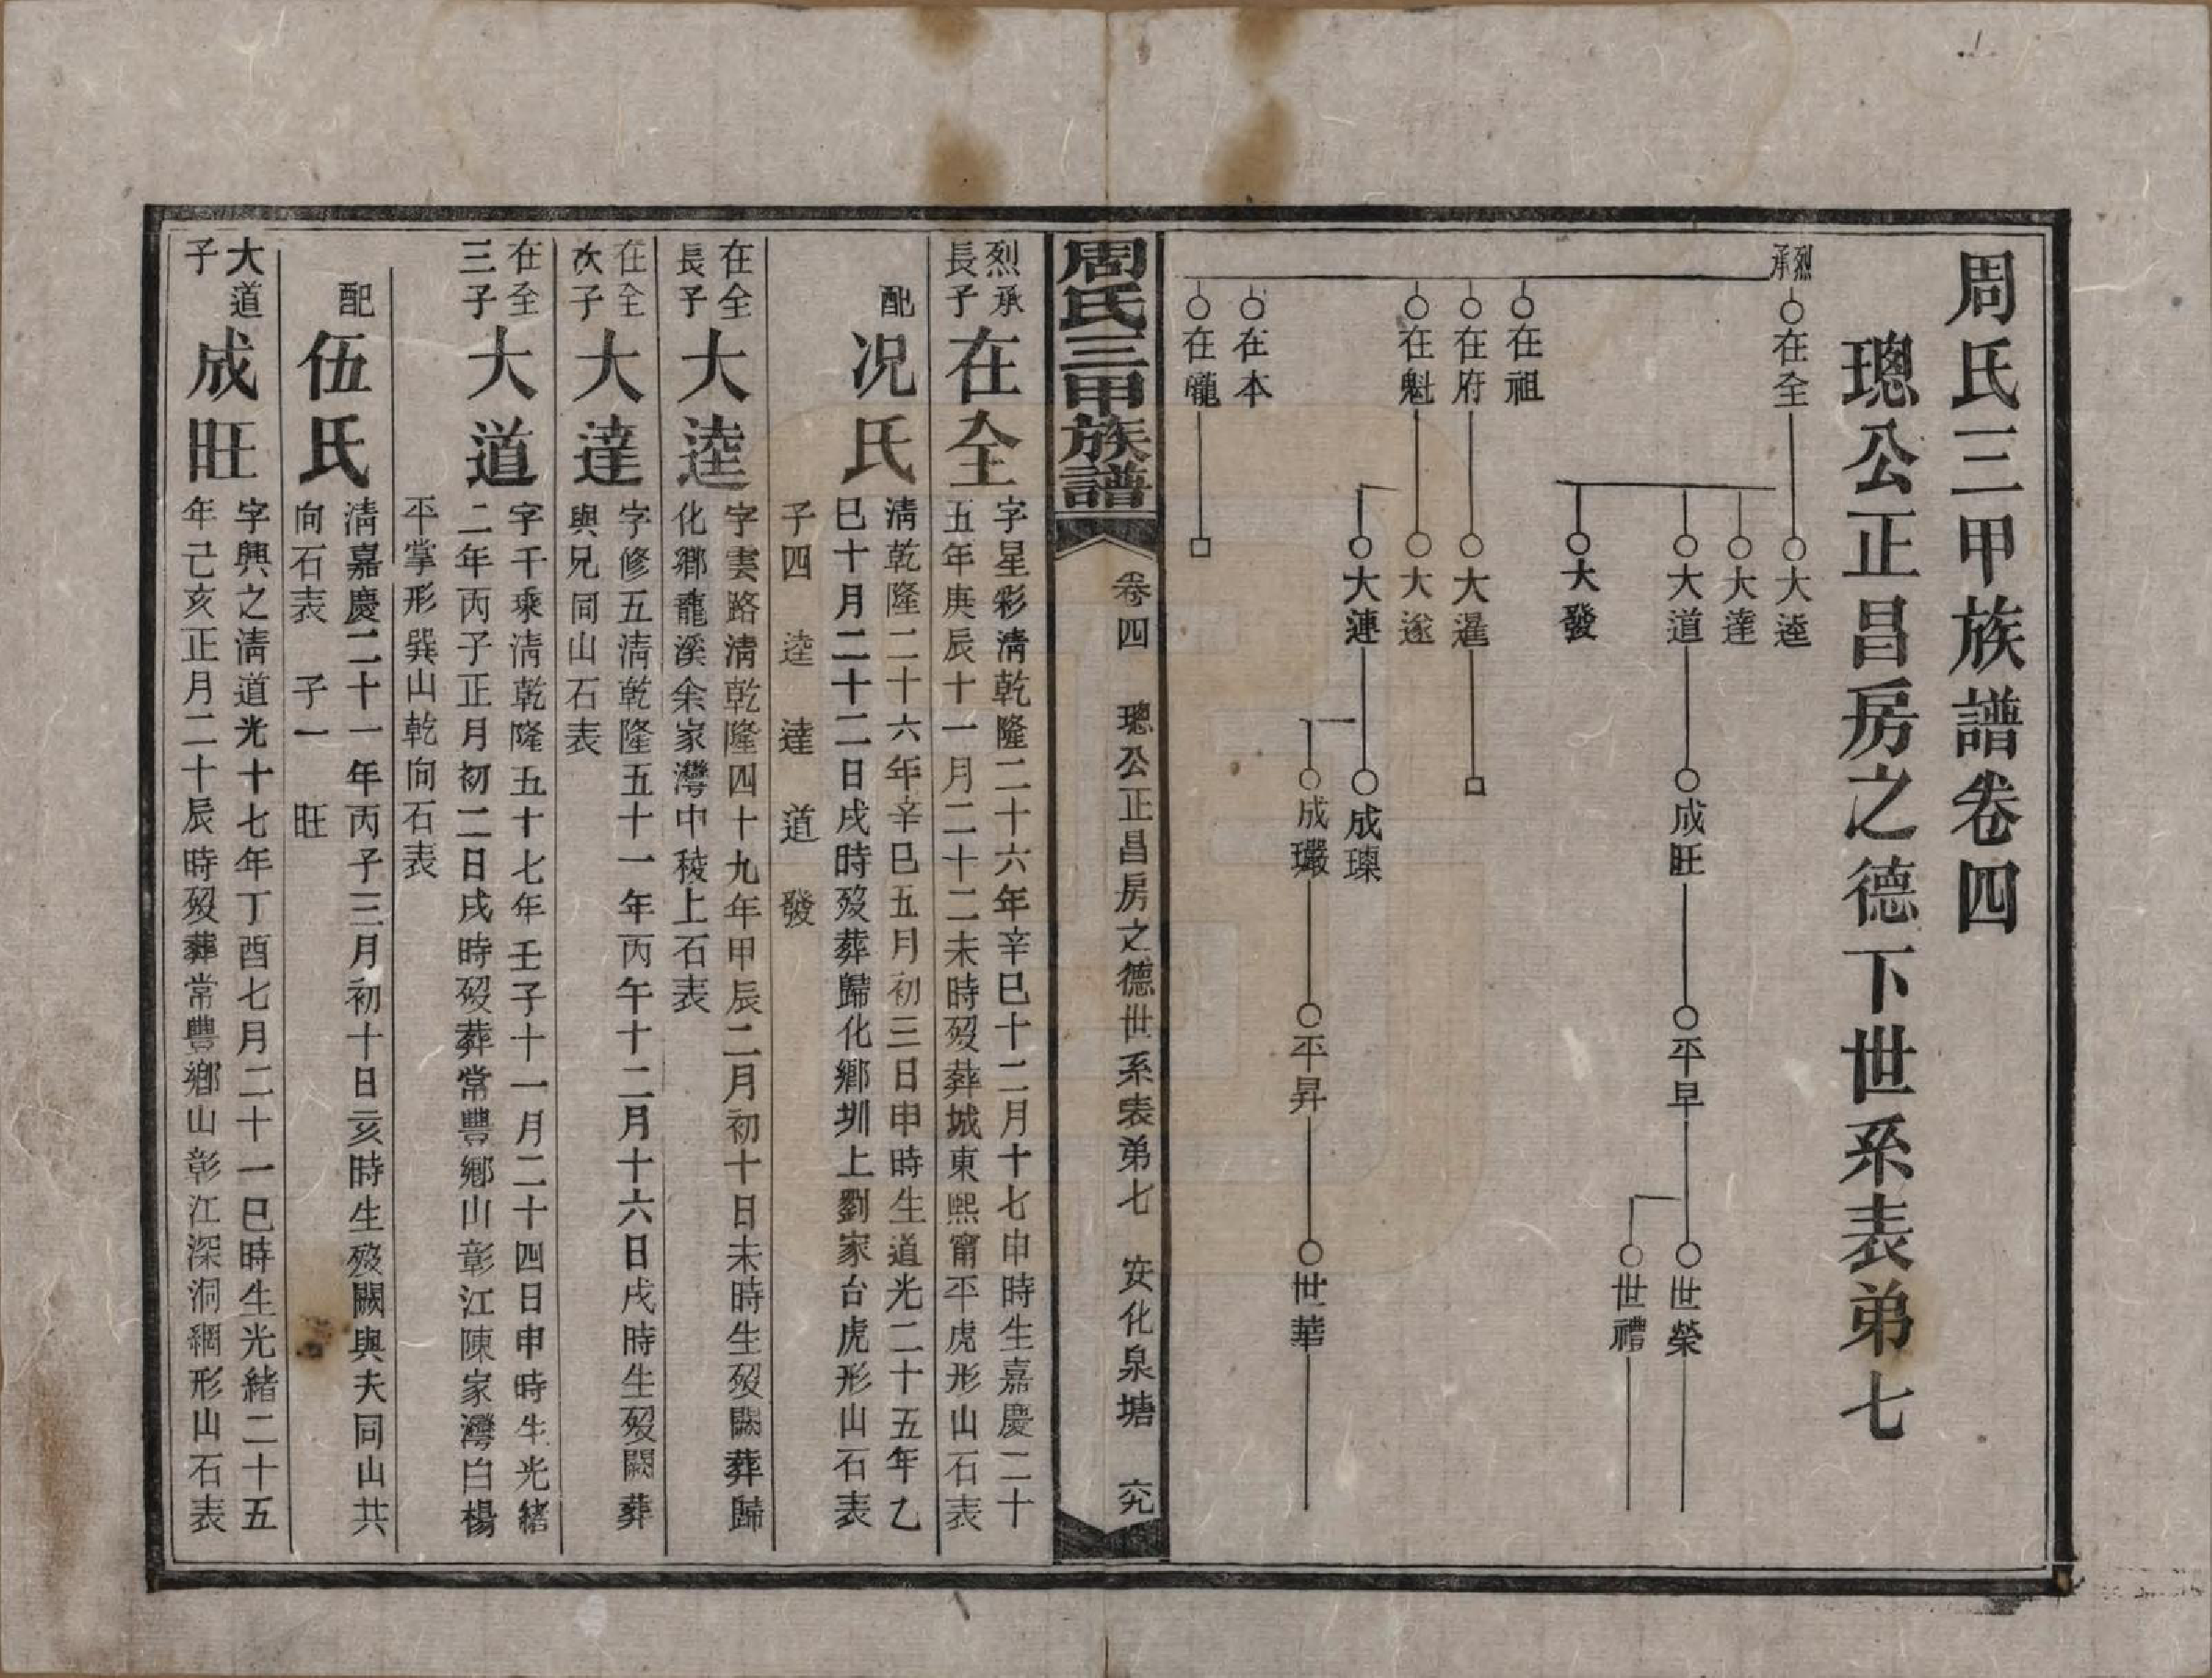 周氏三甲族譜卷四
璁公正昌房之德下世系表弟七
烈承
在全
在祖
在府
在魁
在本
在龍
大逵
大達
大道
大發
大暹
大遂
大連
成旺
成瓅
成瓛
平早
平昇
世榮
世禮
世華
周氏三甲族譜
卷四 璁公正昌房之德世系表弟七 安化泉塘 六九
烈承長子
在全
字星彩淸乾隆二十六年辛巳十二月十七申時生嘉慶二十
五年庚辰十一月二十二未時歿葬城東熙甯平虎形山石表
配況氏
淸乾隆二十六年辛巳五月初三日申時生道光二十五年乙
巳十月二十二日戌時歿葬歸化鄉圳上劉家台虎形山石表
子四 逵 達 道 發
在全長子
大逵
字雲路淸乾隆四十九年甲辰二月初十日未時生歿闕葬歸
化鄉龍溪余家灣中稜上石表
在全次子
大達
字修五淸乾隆五十一年丙午十二月十六日戌時生歿闕葬
與兄同山石表
在全三子
大道
字千乘淸乾隆五十七年壬子十一月二十四日申時生光緒
二年丙子正月初二日戌時歿葬常豐鄉山彰江陳家灣白楊
平掌形巽山乾向石表
配伍氏
淸嘉慶二十一年丙子三月初十日亥時生歿闕與夫同山共
向石表 子一 旺
大道子
成旺
字興之淸道光十七年丁酉七月二十一巳時生光緒二十五
年己亥正月二十辰時歿葬常豐鄉山彰江深洞網形山石表